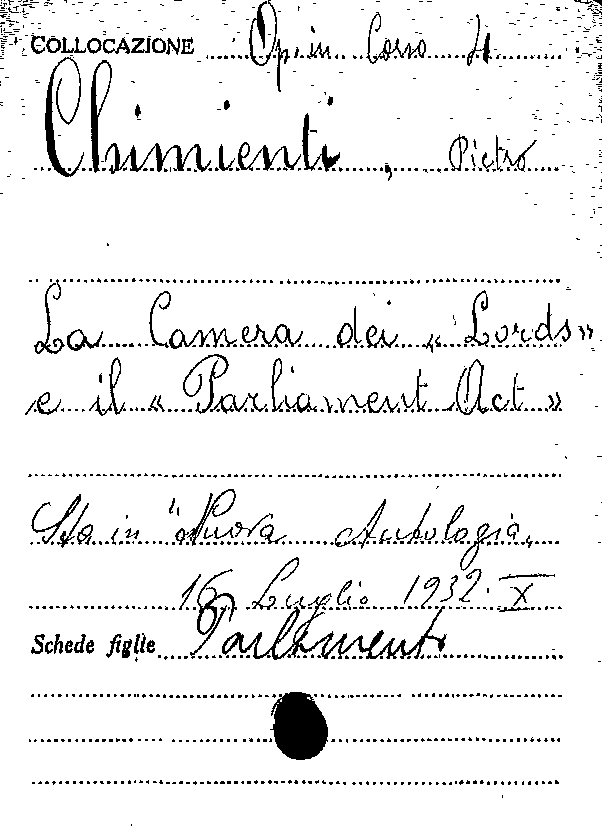 COLLOCAZIONE Op. in Corso 4
Chimienti, Pietro
La Camera dei « Lords »
e il « Parliament Act »
Sta in "Nuova Antologia„
16 Luglio 1932. X
Schede figlie Parlamento